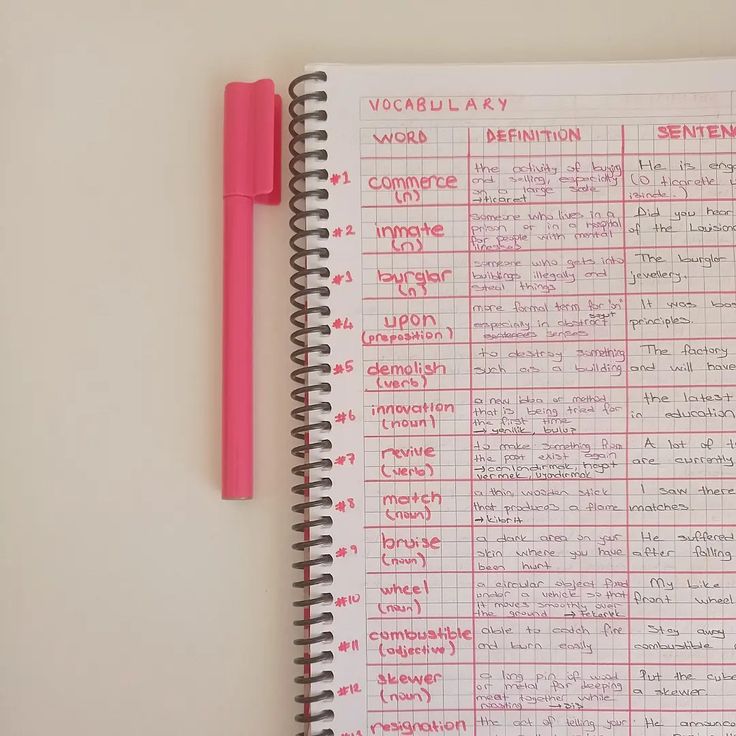 VOCABULARY
WORD DEFINITION SENTEN
#1 commerce (n)
the activity of buying
and selling, especially
on a large scale
→ticaret
He is eng
(O ticaretle
isinde..)
#2 inmate (n)
someone who lives in a
prison or in a hospital
for people with mental
illnesses
Did you hear
of the Louisian
#3 burglar (n)
someone who gets into
buildings illegally and
steal things
The burglar
jewellery.
#4 upon (preposition)
more formal term for "on"
especially in abstract
senses
It was bas
principles.
#5 demolish (verb)
to destroy something
such as a building
The factory
and will have
#6 innovation (noun)
a new idea or method
that is being tried for
the first time
→ yenilik, buluş
the latest
in education
#7 revive (verb)
to make something from
the past exist again
→canlandırmak, hayat
vermek, uyandırmak
A lot of t
are currently
#8 match (noun)
a thin wooden stick
that produces a flame
→ kibrit
I saw there
matches.
#9 bruise (noun)
a dark area on your
skin where you have
been hurt
He suffered
after falling
#10 wheel (noun)
a circular object fixed
under a vehicle so that
it moves smoothly over
the ground → tekerlek
My bike
front wheel
#11 combustible (adjective)
able to catch fire
and burn easily
Stay away
combustible
#12 skewer (noun)
a long pin of wood
or metal for keeping
meat together while
roasting → şiş
Put the cube
a skewer.
resignation
the act of telling your
He announc